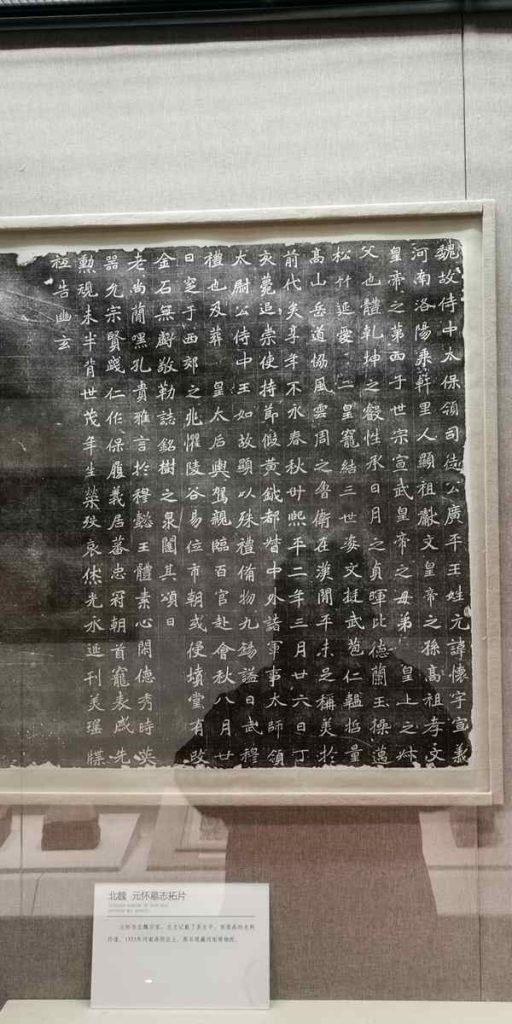 魏故侍中太保領司徒公廣平王姓元諱懷字宣義
河南洛陽乘軒里人顯祖獻文皇帝之孫高祖孝文
皇帝之第四子世宗宣武皇帝之母弟 皇上之叔
父也體乾坤之叡性承日月之貞暉比德蘭玉操邁
松竹延愛 二皇寵結三世姿文挺武苞仁韞哲量
高山岳道協風雲周之魯衛在漢間平未足稱美於
前代矣享年不永春秋卅熙平二年三月廿六日丁
亥薨追崇使持節假黃鉞都督中外諸軍事太師領
太尉公侍中王如故顯以殊禮備物九錫謚曰武穆
禮也及葬 皇太后輿駕親臨百官赴會秋八月廿
日窆于西郊之兆懼陵谷易位市朝或侵墳堂有改
金石無虧敬勒誌銘樹之泉闥其頌曰
老尚簡嘿孔貴雅言於穆懿王體素心閑德秀時英
器允宗賢踐仁作保履義居蕃忠冠朝首寵表戚先
勳規未半背世茂年生榮歿哀休光永延刊美瑶牒
祇告幽玄
北魏 元怀墓志拓片